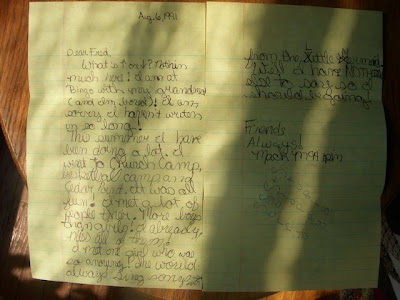 Aug. 6, 1991
Dear Fred,
What's up? Nothin
much here! I am at
Bingo with my grandma
(and I'm bored)! I am
sorry I haven't written
in so long!
This summer I have
been doing a lot. I
went to Church Camp,
basketball camp and
. It was all
fun! I met a lot of
people there. More boys
than girls! I already
miss all of them!
I met one girl who was
so annoying! She would
always sing songs
from the Little Mermaid.
Well I have nothing
else to say so I
should be going!
Friends
Always!